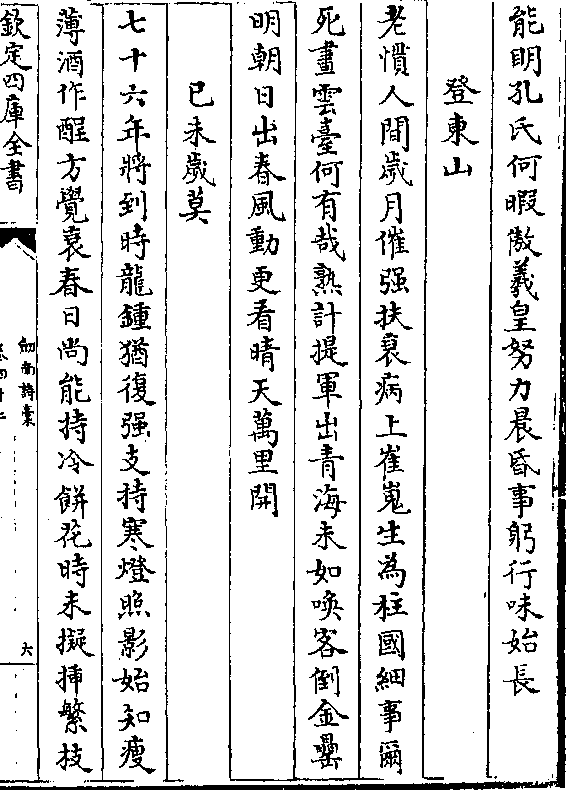 能明孔氏何暇傲羲皇努力晨昏事躬行味始長
登東山
老慣人間歲月催强扶衰病上崔嵬生為柱國細事爾
死畫雲臺何有哉熟計提軍出青海未如喚客倒金罍
明朝日出春風動更看晴天萬里開
已未歲莫
七十六年將到時龍鍾猶復强支持寒燈照影始知瘦
薄酒作醒方覺衰春日尚能持冷餅花時未擬揷繁枝
欽定四庫全書
劒南詩稾
六